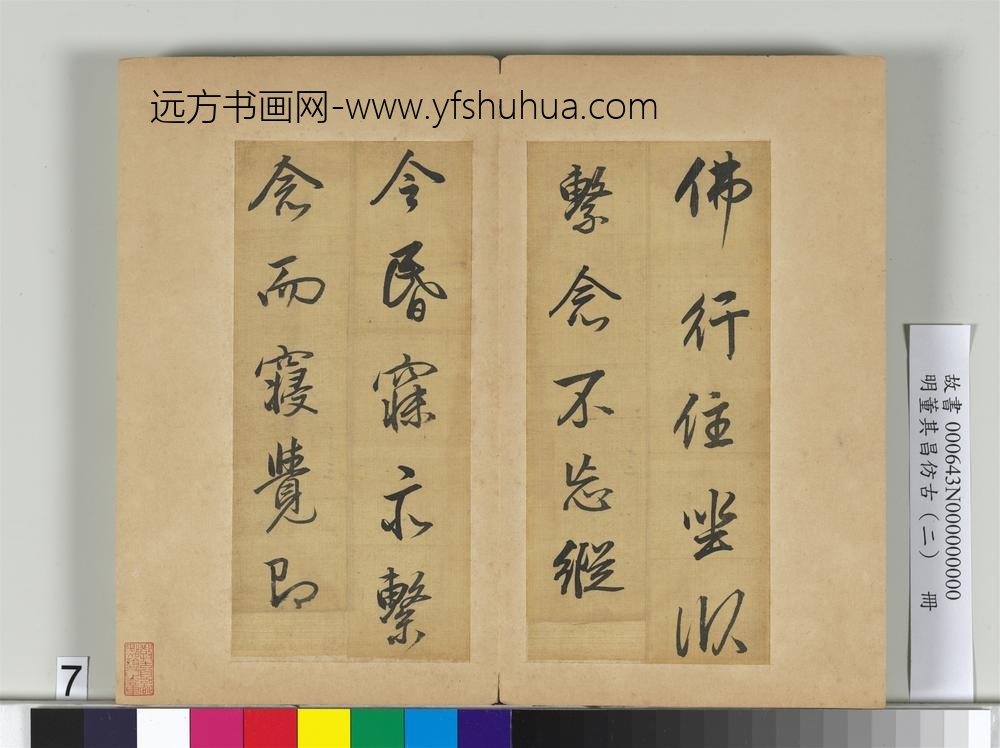 远方书画网-www.yfshuhua.com
佛行住坐臥
繫念不忘縱
令昏寐亦繫
念而寢覺即
故書 000643N000000000
明董其昌仿古(二) 冊
7